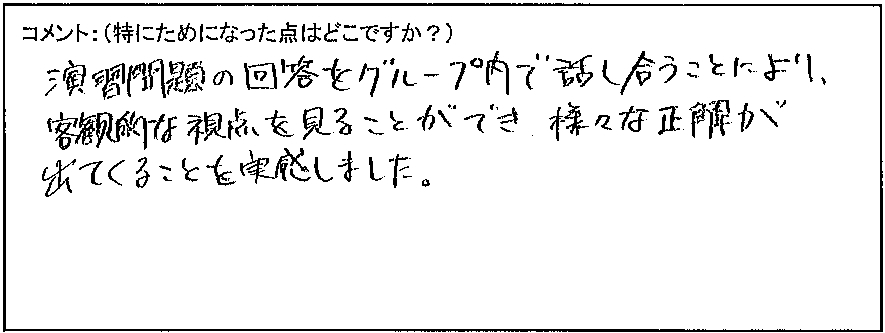 コメント：（特にためになった点はどこですか？）
演習問題の回答をグループ内で話し合うことにより、
客観的な視点を見ることができ 様々な正解が
出てくることを実感しました。